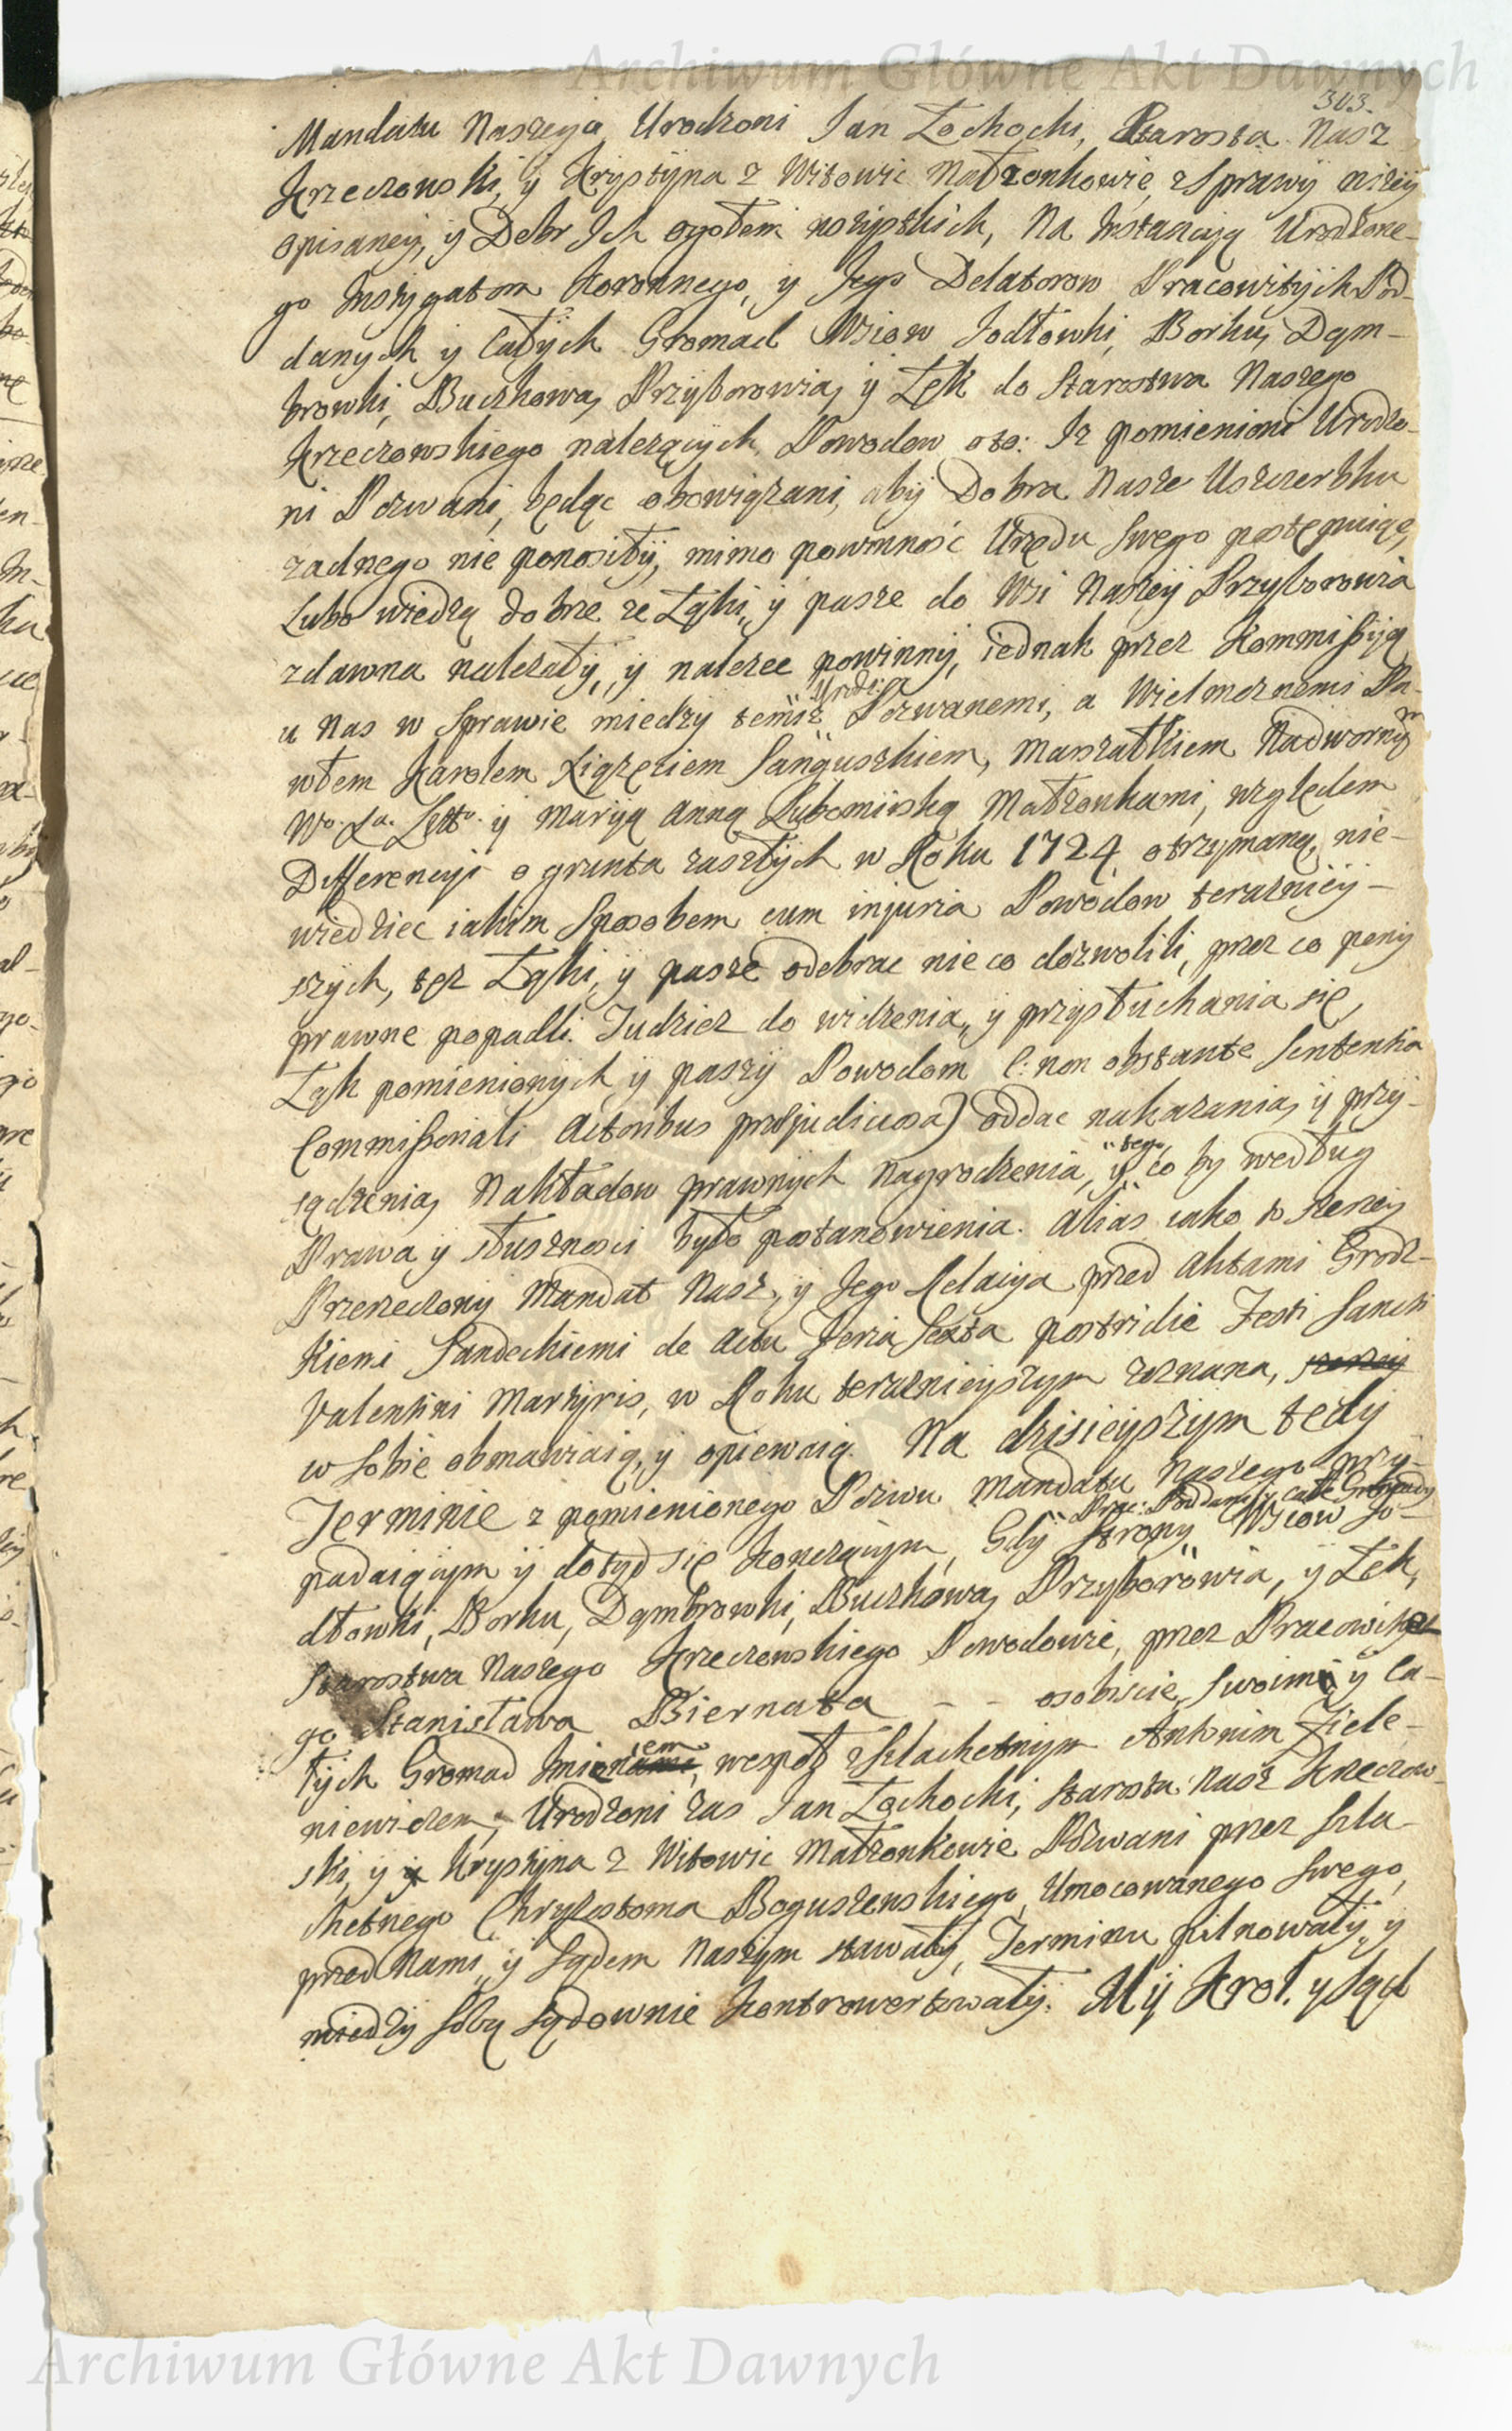 Archiwum Główne Akt Dawnych
303.
Mandatu Naszego Urodzoni Jan Łochocki, Starosta Nasz
Krzeczowski, y Krystyna z Witowic Małżonkowie, z Sprawy niżey
opisaney, y Dobr Ich ogołem wszystkich, Na Instancyą Urodzone-
go Instygatora Koronnego, y Jego Delatorow Pracowitych Pod-
danych y Całych Gromad Wsiow Jodłowki, Borku, Dąm-
browki, Buczkowa, Przyborowia, y Łęk do Starostwa Naszego
Krzeczowskiego należących, Powodow oto: Iż pomienioni Urodzo-
ni Pozwani, będąc obowiązani, aby Dobra Nasze Uszczerbku
żadnego nie ponosiły, mimo powinność Urzędu swego postępuiąc,
Lubo wiedzą dobrze że Łąki, y pasze do Wsi Naszey Przyborowia
zdawna należały, y należec powinny, iednak przez Kommissyią
u Nas w Sprawie miedzy temiż Urodz: Pozwanemi, a Wielmoznemi Pa-
włem Karolem Xiązęciem Sanguszkiem, Marszałkiem Nadwornym
Wo. Xa. Litto. y Maryą Anną Lubomirską Małżonkami, względem
Differencyi o grunta zaszłych w Roku 1724 otrzymaną, nie-
wiedziec iakim Sposobem cum injuria Powodow terazniey-
szych, też Łąki, y pasze odebrac nieco dozwolili, przez co peny
prawne popadli. Tudziez do widzenia, y przysłuchania się,
Łąk pomienionych y paszy Powodom (: non obstante Sententia
Commissoriali Actoribus praejudiciosa) oddac nakazania, y przy-
sądzenia, Nakładow prawnych Nagrodzenia, y tego co by według
Prawa y słusznosci było postanowienia. Alias iako to szerzey
Przerzeczony Mandat Nasz, y Jego Relacya przed Aktami Grodz-
kiemi Sandeckiemi de Actu Feria Sexta postridie Festi Sancti
Valentini Martyris, w Roku teraznieyszym zeznana, szerzey
w sobie obmawiaią, y opiewaią. Na dzisieyszym tedy
Terminie z pomienionego Pozwu Mandatu Naszego przy-
padaiącym y dotyd się kończącym, Gdy Strony Prac: Poddani y całe Gromady Wsiow Jo-
dłowki, Borku, Dąmbrowki, Buczkowa, Przyborowia, y Łęk,
Starostwa Naszego Krzeczowskiego Powodowie, przez Pracowite-
go Stanisława Biernata - - osobiscie, Swoim y ca-
łych Gromad Imieniem, wespoł z Szlachetnym Antonim Ziele-
niewiczem, Urodzoni zas Jan Łochocki, Starosta Nasz Krzeczow-
ski, y Krystyna z Witowic Małżonkowie Pozwani przez Szla-
chetnego Chryzostoma Boguszewskiego Umocowanego Swego,
przed Nami, y Sądem Naszym stawały, Terminu pilnowały, y
miedzy sobą Sądownie kontrowertowały. My Krol. y Sąd
Archiwum Główne Akt Dawnych